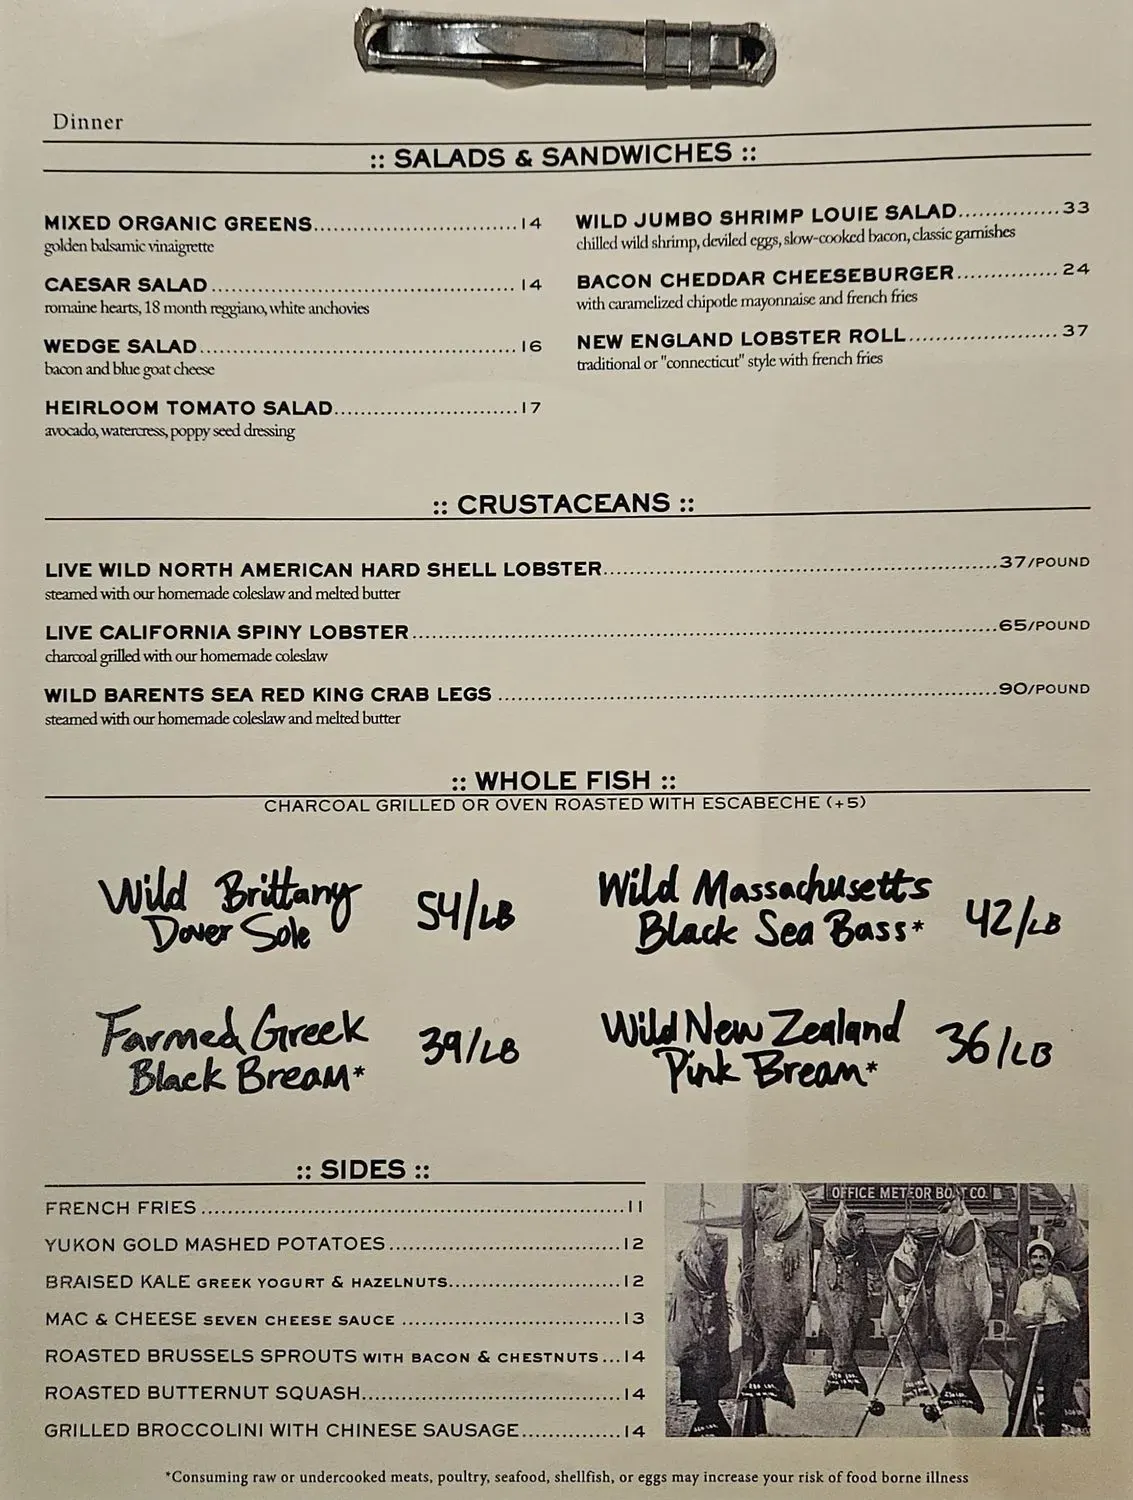 Dinner
:: SALADS & SANDWICHES ::
MIXED ORGANIC GREENS..............................14
golden balsamic vinaigrette
CAESAR SALAD.............................................14
romaine hearts, 18 month reggiano, white anchovies
WEDGE SALAD...............................................16
bacon and blue goat cheese
HEIRLOOM TOMATO SALAD...........................17
avocado, watercress, poppy seed dressing
WILD JUMBO SHRIMP LOUIE SALAD..............33
chilled wild shrimp, deviled eggs, slow-cooked bacon, classic garnishes
BACON CHEDDAR CHEESEBURGER..............24
with caramelized chipotle mayonnaise and french fries
NEW ENGLAND LOBSTER ROLL.....................37
traditional or "connecticut" style with french fries
:: CRUSTACEANS ::
LIVE WILD NORTH AMERICAN HARD SHELL LOBSTER..........................................................37/POUND
steamed with our homemade coleslaw and melted butter
LIVE CALIFORNIA SPINY LOBSTER......................................................................................65/POUND
charcoal grilled with our homemade coleslaw
WILD BARENTS SEA RED KING CRAB LEGS..........................................................................90/POUND
steamed with our homemade coleslaw and melted butter
:: WHOLE FISH ::
CHARCOAL GRILLED OR OVEN ROASTED WITH ESCABECHE (+5)
Wild Brittany
Dover Sole 54/LB
Wild Massachusetts
Black Sea Bass* 42/LB
Farmed Greek
Black Bream* 39/LB
Wild New Zealand
Pink Bream* 36/LB
:: SIDES ::
FRENCH FRIES..............................................................11
YUKON GOLD MASHED POTATOES..................................12
BRAISED KALE GREEK YOGURT & HAZELNUTS.........................12
MAC & CHEESE SEVEN CHEESE SAUCE................................13
ROASTED BRUSSELS SPROUTS WITH BACON & CHESTNUTS...14
ROASTED BUTTERNUT SQUASH......................................14
GRILLED BROCCOLINI WITH CHINESE SAUSAGE..............14
OFFICE METEOR BOAT CO.
*Consuming raw or undercooked meats, poultry, seafood, shellfish, or eggs may increase your risk of food borne illness